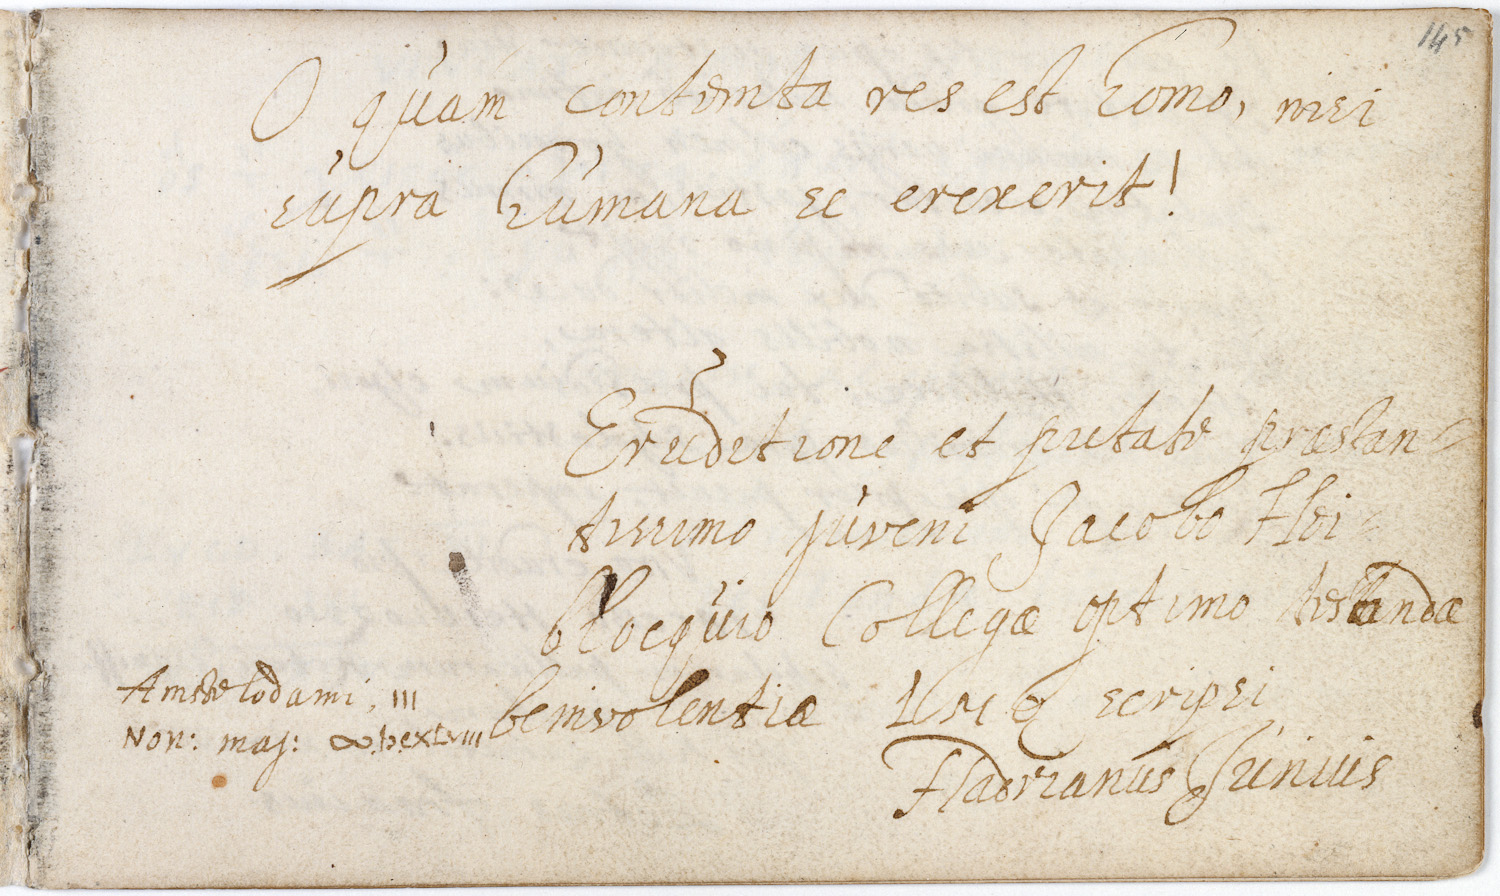 145
O quàm contemta res est homo, nisi
supra humana se erexerit!
Eruditione et pietate præstan-
tissimo juveni Jacobo Hei-
blocquio Collegæ optimo testandæ
benivolentiæ scripsi
Hadrianus Junius
Amstelodami, III
Non: maj: